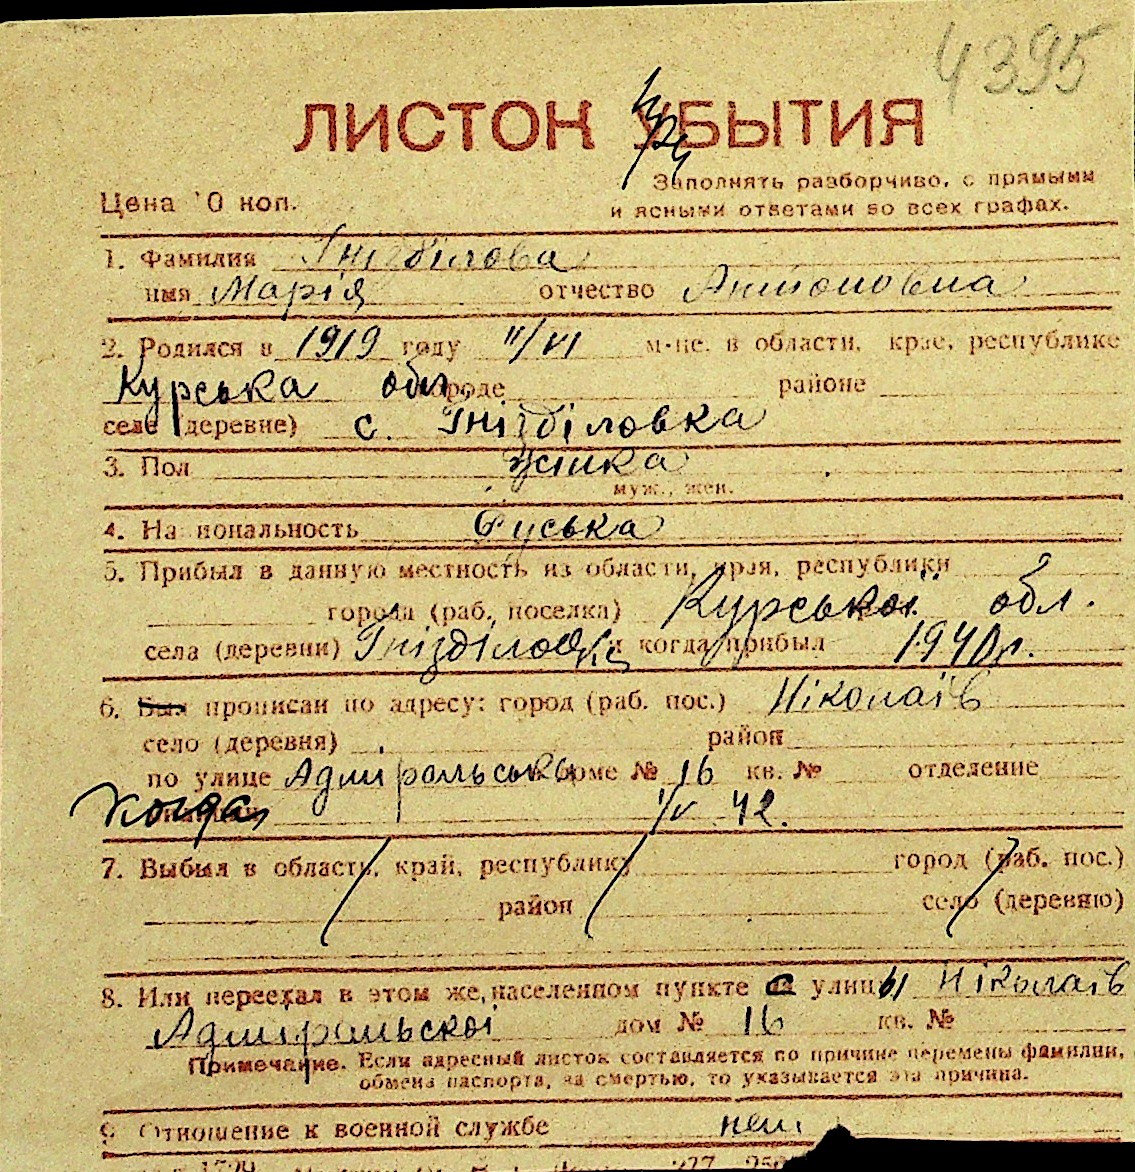 4395
ЛИСТОК УБЫТИЯ
Заполнять разборчиво, с прямыми
Цена 10 коп.
и ясными ответами во всех графах.
1. Фамилия Гнізділова
имя Марія отчество Антоновна
2. Родился в 1919 году 11/VI м-це. в области, крае, республике
Курська обл. городе районе
селе (деревне) с. Гнізділовка
3. Пол жінка
муж., жен.
4. Национальность Руська
5. Прибыл в данную местность из области, края, республики
города (раб. поселка) Курської обл.
села (деревни) Гнізділовка и когда прибыл 1940 г.
6. Был прописан по адресу: город (раб. пос.) Ніколаїв
село (деревня) район
по улице Адміральська доме № 16 кв. № отделение
когда 1/V 42.
7. Выбыл в область, край, республику город (раб. пос.)
район село (деревню)
8. Или переехал в этом же, населенном пункте с улицы Ніколаїв
Адміральскої дом № 16 кв. №
Примечание. Если адресный листок составляется по причине перемены фамилии,
обмена паспорта, за смертью, то указывается эта причина.
9. Отношение к военной службе нет.